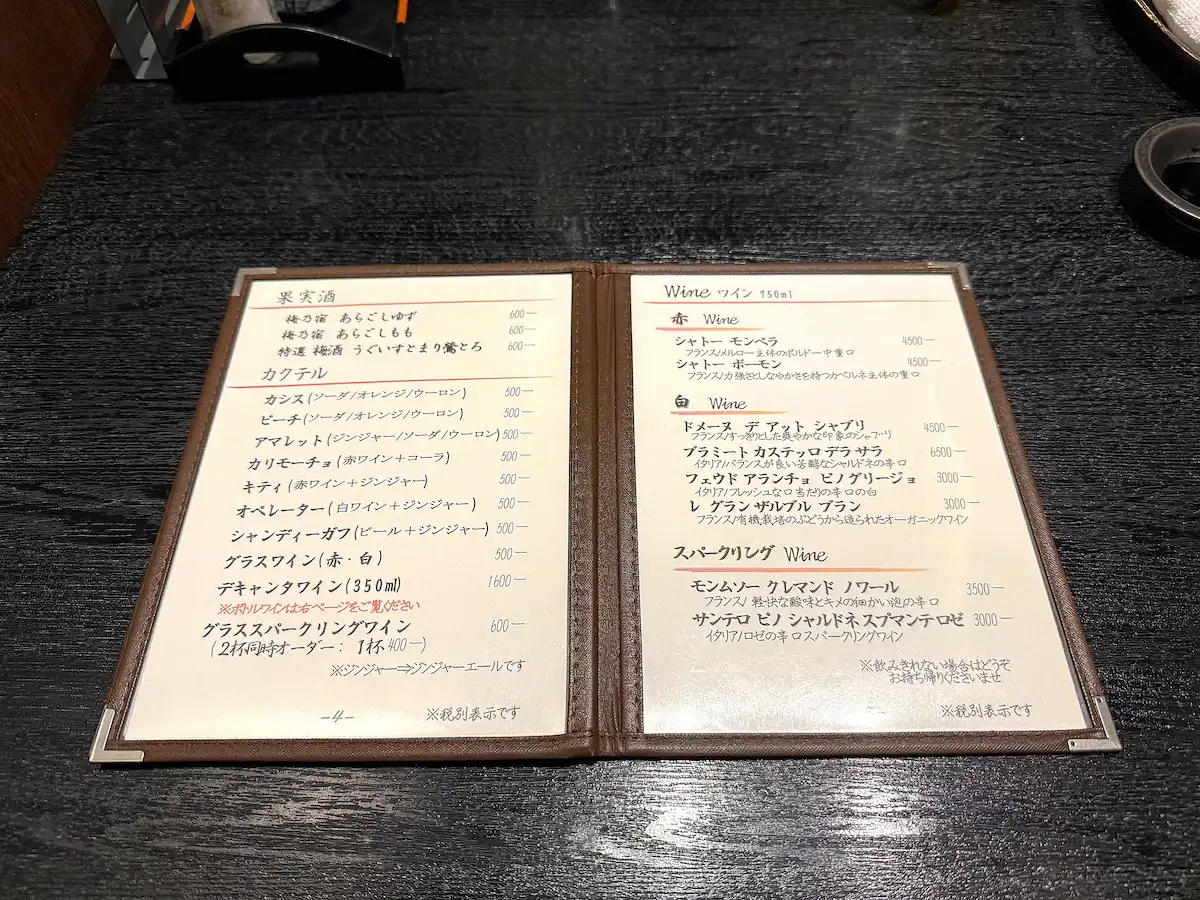 果実酒
梅乃宿 あらごしゆず 600—
梅乃宿 あらごしもも 600—
特選 梅酒 うぐいすとまり鶯とろ 600—
カクテル
カシス(ソーダ/オレンジ/ウーロン) 500—
ピーチ(ソーダ/オレンジ/ウーロン) 500—
アマレット(ジンジャー/ソーダ/ウーロン) 500—
カリモーチョ(赤ワイン+コーラ) 500—
キティ(赤ワイン+ジンジャー) 500—
オペレーター(白ワイン+ジンジャー) 500—
シャンディーガフ(ビール+ジンジャー) 500—
グラスワイン(赤・白) 500—
デキャンタワイン(350ml) 1600—
※ボトルワインは右ページをご覧ください
グラススパークリングワイン 600—
(2杯同時オーダー: 1杯400—)
※ジンジャー⇒ジンジャーエールです
-4-
※税別表示です
Wine ワイン 750ml
赤 Wine
シャトー モンペラ 4500—
フランス/メルロー主体のボルドー中重口
シャトー ボーモン 4500—
フランス/力強さとしなやかさを持つカベルネ主体の重口
白 Wine
ドメーヌ デ アット シャブリ 4500—
フランス/すっきりとした爽やかな印象のシャブリ
ブラミート カステッロ デラ サラ 6500—
イタリア/バランスが良い芳醇なシャルドネの辛口
フェウド アランチョ ピノグリージョ 3000—
イタリア/フレッシュな口当たりの辛口の白
レ グラン ザルブル ブラン 3000—
フランス/有機栽培のぶどうから造られたオーガニックワイン
スパークリング Wine
モンムソー クレマンド ノワール 3500—
フランス/ 軽快な酸味とキメの細かい泡の辛口
サンテロ ピノ シャルドネ スプマンテ ロゼ 3000—
イタリア/ロゼの辛口スパークリングワイン
※飲みきれない場合はどうぞ
お持ち帰りくださいませ
※税別表示です